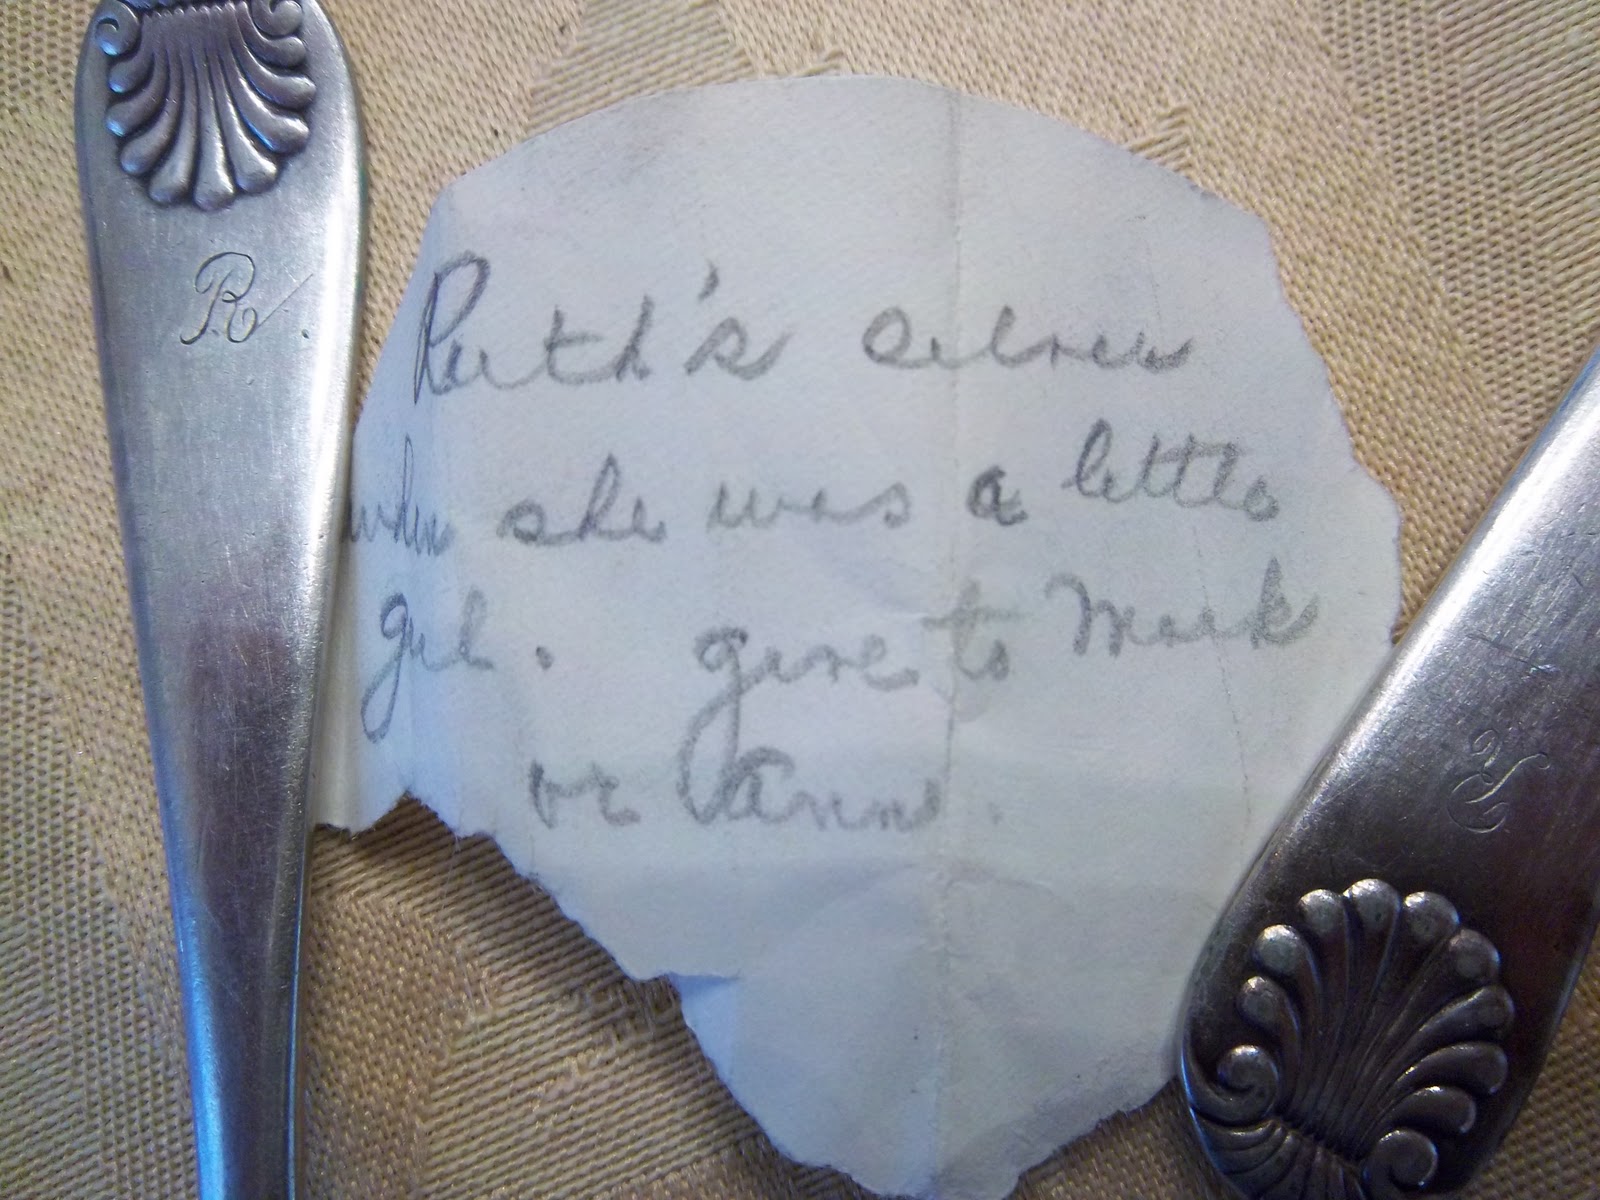 R.
Ruth's silver
when she was a little
girl. give to Mark
or Anne.
R